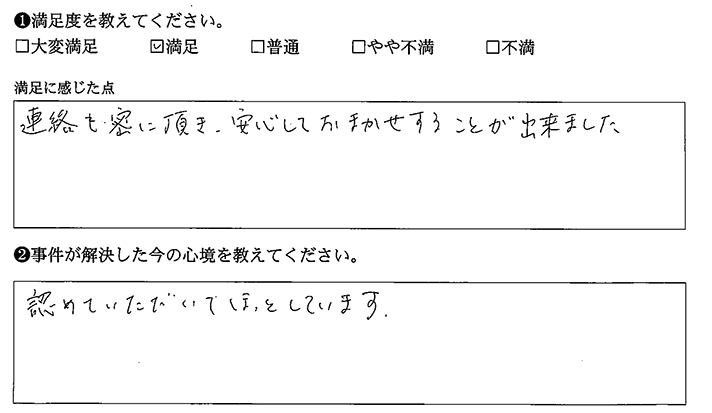 ❶満足度を教えてください。
□大変満足 ☑満足 □普通 □やや不満 □不満
満足に感じた点
連絡も密に頂き、安心しておまかせすることが出来ました
❷事件が解決した今の心境を教えてください。
認めていただいてほっとしています.